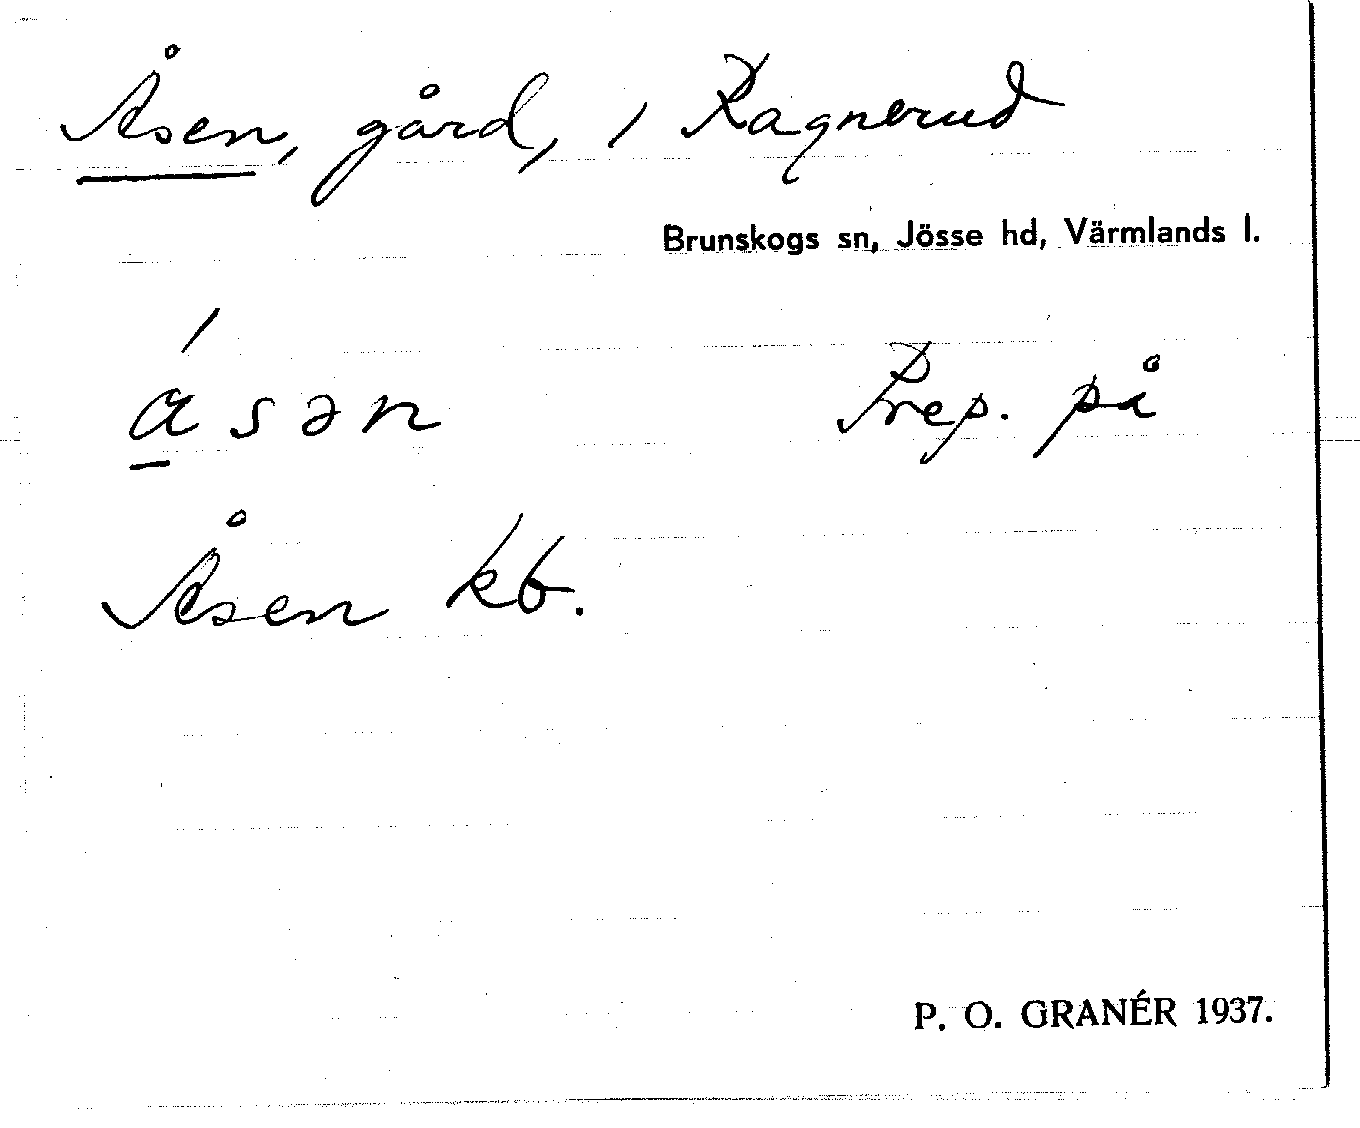 Åsen, gård, i Ragnerud
Brunskogs sn, Jösse hd, Värmlands l.
á̱sən Prep. på
Åsen kb.
P. O. GRANÉR 1937.